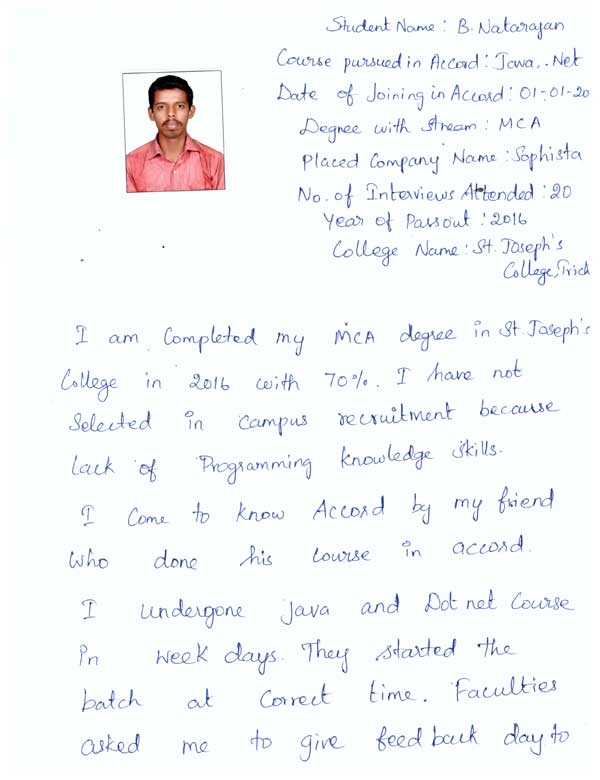 Student Name : B. Natarajan
Course pursued in Accord : Java, .Net
Date of Joining in Accord : 01-01-20
Degree with Stream : MCA
Placed Company Name : Sophista
No. of Interviews Attended : 20
Year of Passout : 2016
College Name : St. Joseph's
College, Trich
I am Completed my MCA degree in St. Joseph's
College in 2016 with 70%. I have not
Selected in campus recruitment because
lack of Programming knowledge skills.
I Come to know Accord by my friend
who done his course in accord.
I undergone java and Dot net Course
in week days. They started the
batch at Correct time. Faculties
asked me to give feed back day to